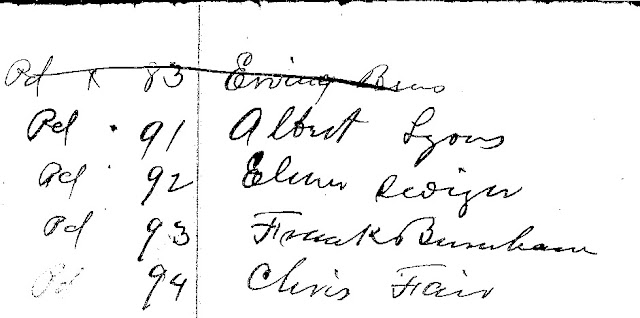 Pd x 83 Erving
Pd . 91 Albert Lyons
Pd 92 Elmer
Pd 93 Frank Burnham
Pd 94 Chris Fair